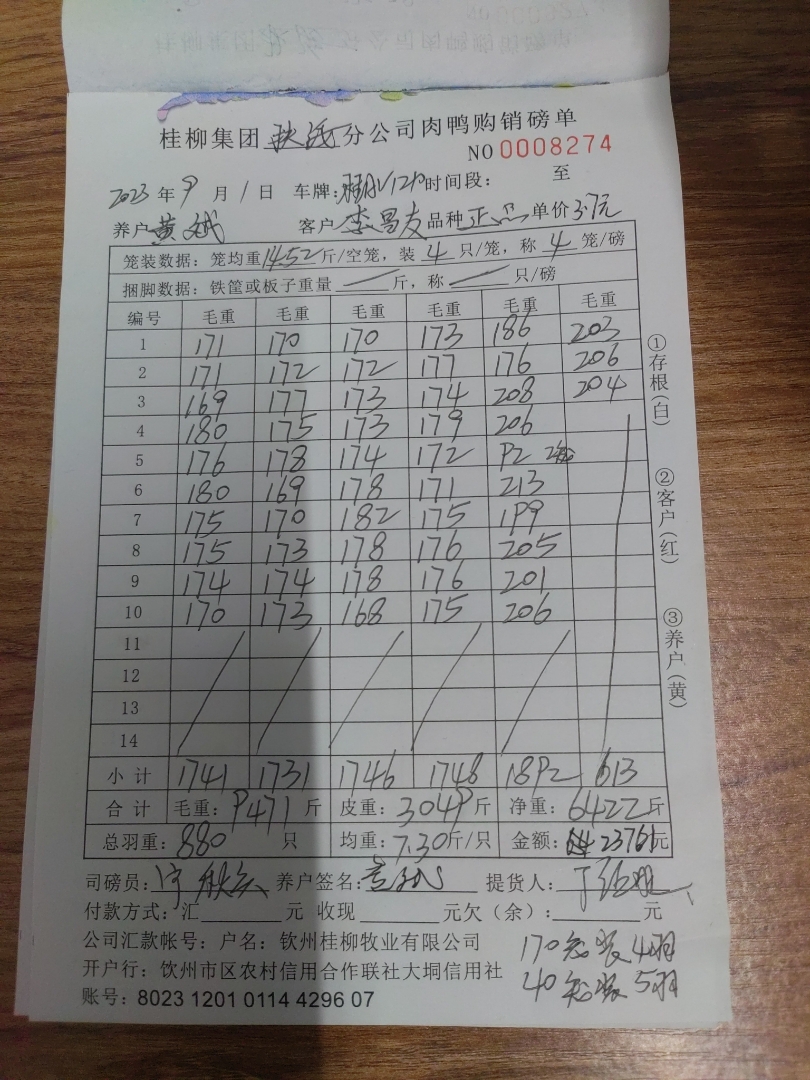 桂柳集团 钦州 分公司肉鸭购销磅单
NO 0008274
2023 年 9 月 1 日 车牌: 时间段: 至
养户 黄斌 客户 李昌友 品种 正品 单价 3.7元
笼装数据: 笼均重 14.52 斤/空笼, 装 4 只/笼, 称 4 笼/磅
捆脚数据: 铁筐或板子重量 斤, 称 只/磅
编号 毛重 毛重 毛重 毛重 毛重 毛重
1 171 170 170 173 186 203
2 171 172 172 177 176 206
3 169 177 173 174 208 204
4 180 175 173 179 206
5 176 178 174 172 92 2笼
6 180 169 178 171 213
7 175 170 182 175 199
8 175 173 178 176 205
9 174 174 178 176 201
10 170 173 168 175 206
11
12
13
14
小计 1741 1731 1746 1748 1892 613
合计 毛重: 9471 斤 皮重: 3049 斤 净重: 6422 斤
总羽重: 880 只 均重: 7.30 斤/只 金额: 23761 元
司磅员: 养户签名: 黄斌 提货人:
付款方式: 汇 元 收现 元 欠(余): 元
公司汇款帐号: 户名: 钦州桂柳牧业有限公司
170笼装4羽
开户行: 钦州市区农村信用合作联社大垌信用社
40笼装5羽
账号: 8023 1201 0114 4296 07
①存根(白)
②客户(红)
③养户(黄)